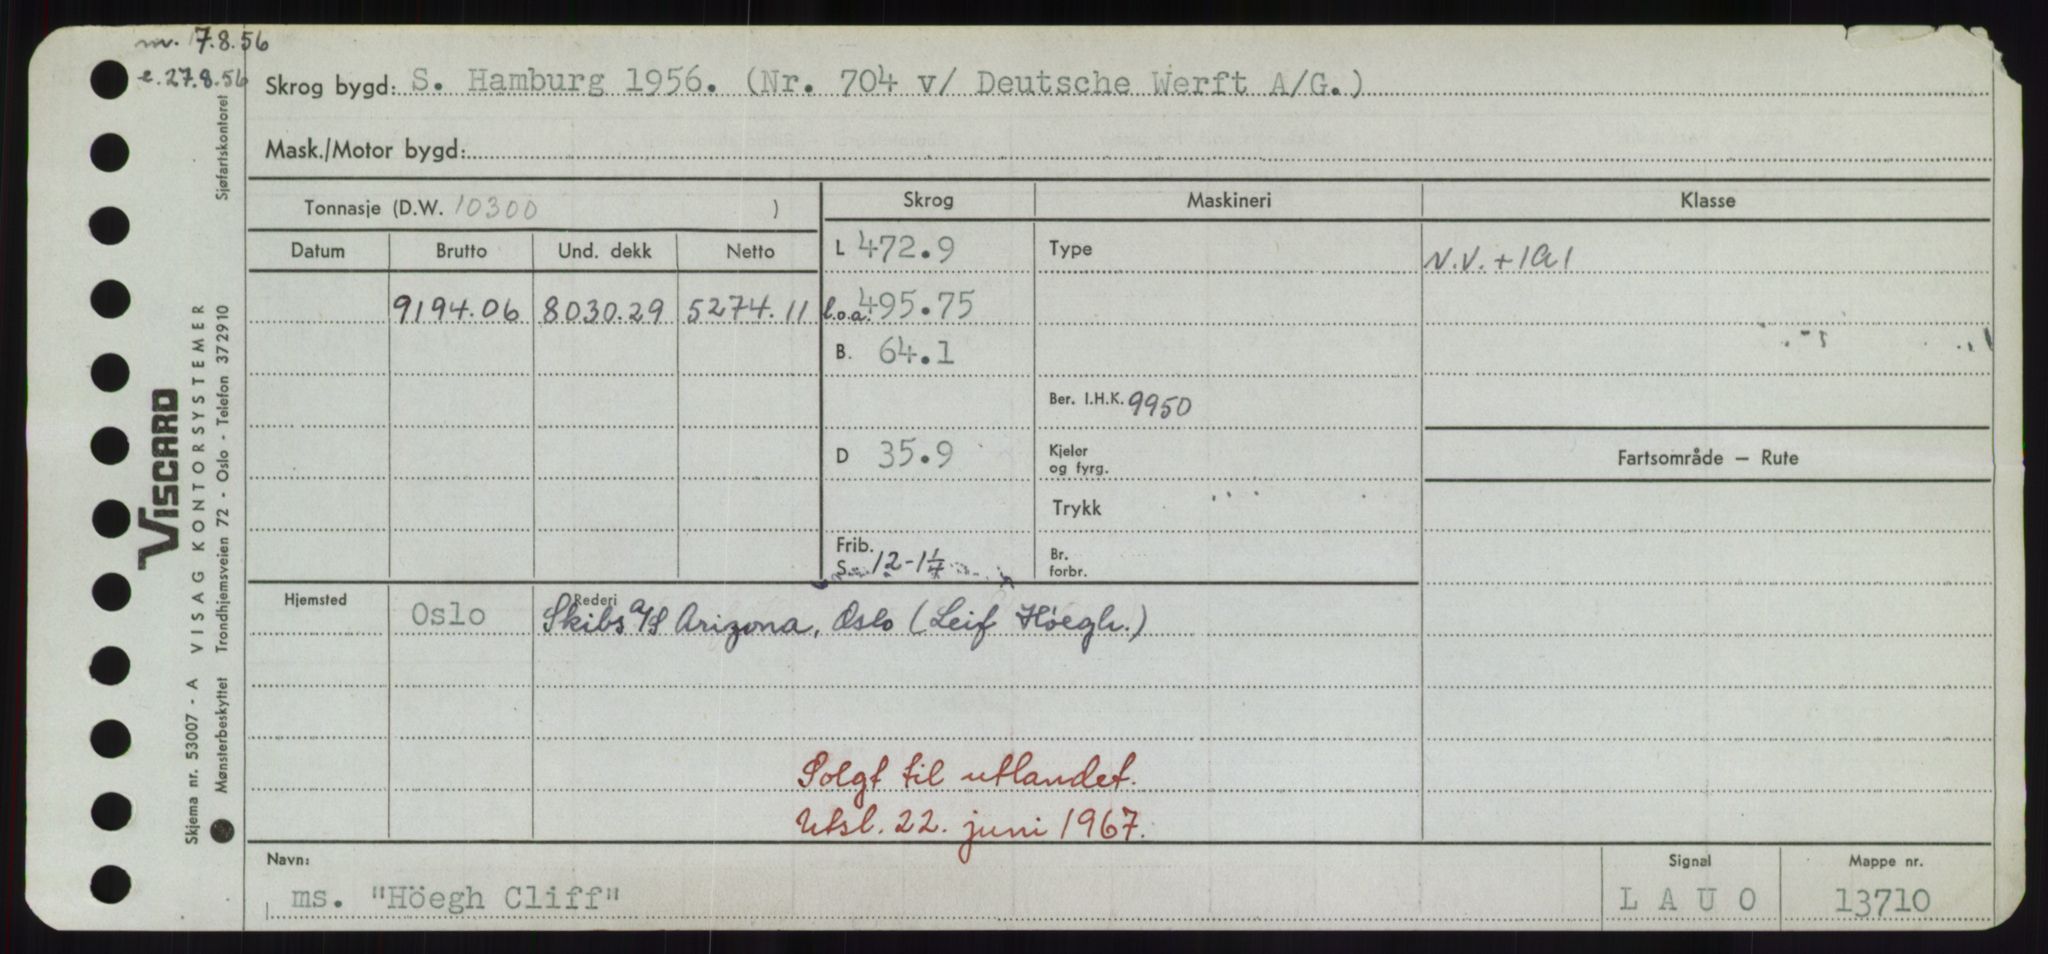 m. 7.8.56
e. 27.8.56
Skrog bygd: S. Hamburg 1956. (Nr. 704 v/ Deutsche Werft A/G.)
Mask./Motor bygd:
Tonnasje (D.W. 10300 )
Skrog Maskineri Klasse
Datum Brutto Und. dekk Netto
L 472.9 Type N.V. + 1A1
9194.06 8030.29 5274.11 l.o.a. 495.75
B. 64.1
Ber. I.H.K. 9950
D 35.9 Kjeler og fyrg. Fartsområde — Rute
Trykk
Frib. S. 12-1¼ Br. forbr.
Hjemsted Oslo Rederi Skibs a/s Arizona, Oslo (Leif Höegh.)
Solgt til utlandet.
Utsl. 22. juni 1967.
Navn: Signal Mappe nr.
ms. "Höegh Cliff" L A U O 13710
Sjøfartskontoret
VISCARD
VISAG KONTORSYSTEMER
Trondhjemsveien 72 - Oslo - Telefon 372910
Skjema nr. 53007 - A
Mønsterbeskyttet